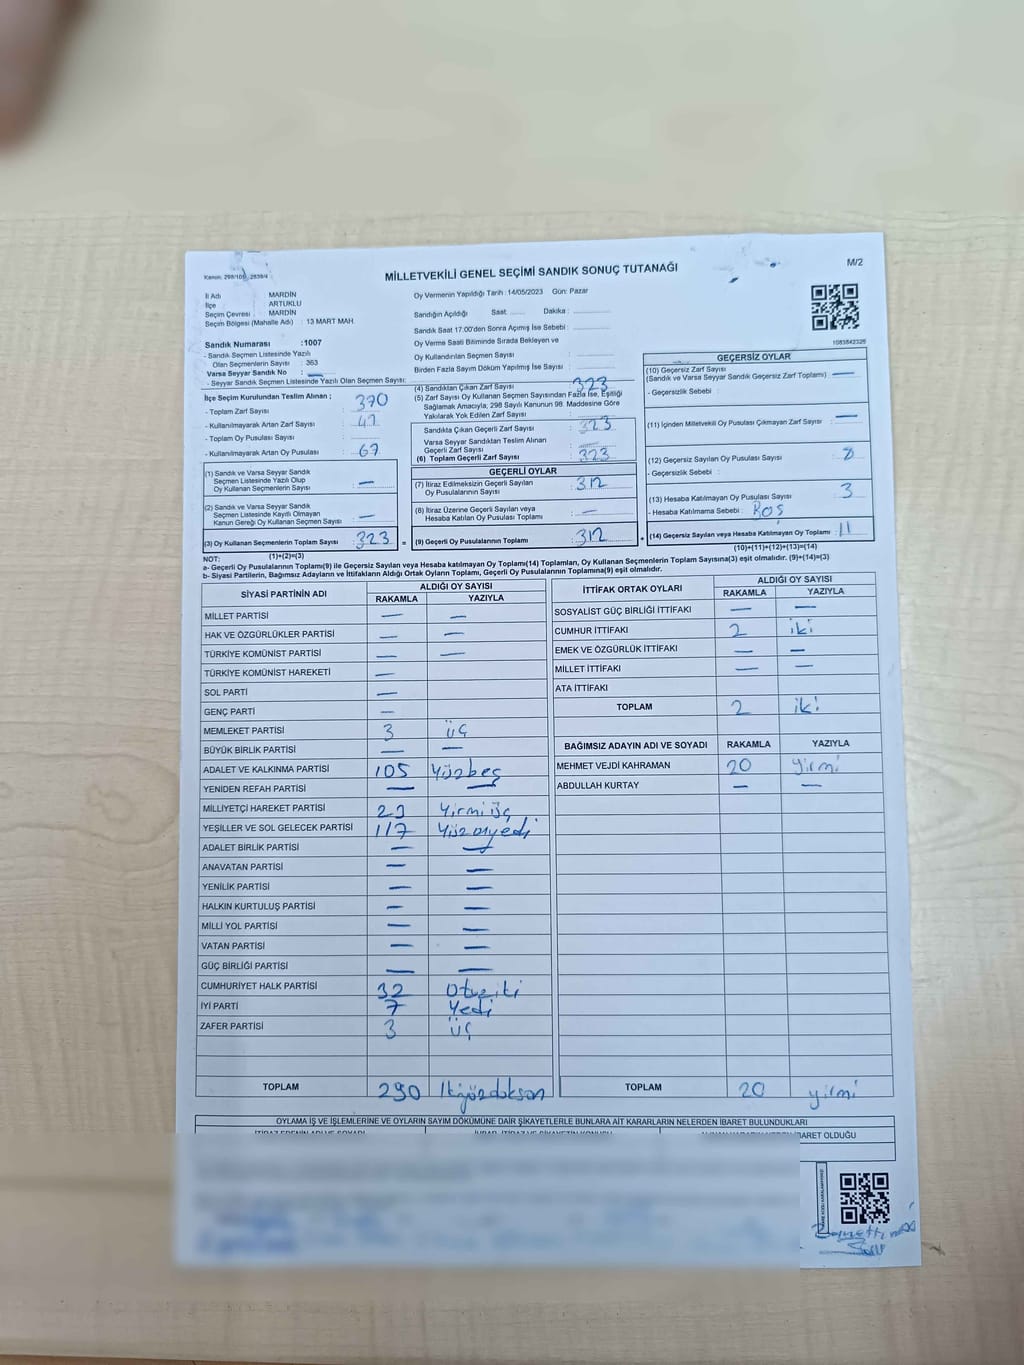 Kanun: 298/105, 2839/4
MİLLETVEKİLİ GENEL SEÇİMİ SANDIK SONUÇ TUTANAĞI
M/2
İl Adı MARDİN
İlçe ARTUKLU
Seçim Çevresi : MARDİN
Seçim Bölgesi (Mahalle Adı) : 13 MART MAH.
Sandık Numarası :1007
- Sandık Seçmen Listesinde Yazılı
Olan Seçmenlerin Sayısı : 363
Varsa Seyyar Sandık No : —
- Seyyar Sandık Seçmen Listesinde Yazılı Olan Seçmen Sayısı:
İlçe Seçim Kurulundan Teslim Alınan ;
- Toplam Zarf Sayısı : 370
- Kullanılmayarak Artan Zarf Sayısı : 47
- Toplam Oy Pusulası Sayısı :
- Kullanılmayarak Artan Oy Pusulası : 67
(1) Sandık ve Varsa Seyyar Sandık
Seçmen Listesinde Yazılı Olup
Oy Kullanan Seçmenlerin Sayısı : —
(2) Sandık ve Varsa Seyyar Sandık
Seçmen Listesinde Kayıtlı Olmayan
Kanun Gereği Oy Kullanan Seçmen Sayısı : —
(3) Oy Kullanan Seçmenlerin Toplam Sayısı : 323
(1)+(2)=(3)
Oy Vermenin Yapıldığı Tarih :14/05/2023 Gün: Pazar
Sandığın Açıldığı Saat ...... Dakika :
Sandık Saat 17:00'den Sonra Açımış İse Sebebi :
Oy Verme Saati Bitiminde Sırada Bekleyen ve
Oy Kullandırılan Seçmen Sayısı :
Birden Fazla Sayım Döküm Yapılmış İse Sayısı :
(4) Sandıktan Çıkan Zarf Sayısı : 323
(5) Zarf Sayısı Oy Kullanan Seçmen Sayısından Fazla İse, Eşitliği
Sağlamak Amacıyla; 298 Sayılı Kanunun 98. Maddesine Göre
Yakılarak Yok Edilen Zarf Sayısı :
Sandıkta Çıkan Geçerli Zarf Sayısı : 323
Varsa Seyyar Sandıktan Teslim Alınan
Geçerli Zarf Sayısı :
(6) Toplam Geçerli Zarf Sayısı : 323
GEÇERLİ OYLAR
(7) İtiraz Edilmeksizin Geçerli Sayılan
Oy Pusulalarının Sayısı : 312
(8) İtiraz Üzerine Geçerli Sayılan veya
Hesaba Katılan Oy Pusulası Toplamı : —
= (9) Geçerli Oy Pusulalarının Toplamı : 312
1083842326
GEÇERSİZ OYLAR
(10) Geçersiz Zarf Sayısı
(Sandık ve Varsa Seyyar Sandık Geçersiz Zarf Toplamı) : —
- Geçersizlik Sebebi :
(11) İçinden Milletvekili Oy Pusulası Çıkmayan Zarf Sayısı : —
(12) Geçersiz Sayılan Oy Pusulası Sayısı : 8
- Geçersizlik Sebebi :
(13) Hesaba Katılmayan Oy Pusulası Sayısı : 3
- Hesaba Katılmama Sebebi : BOŞ
+ (14) Geçersiz Sayılan veya Hesaba Katılmayan Oy Toplamı : 11
(10)+(11)+(12)+(13)=(14)
NOT:
a- Geçerli Oy Pusulalarının Toplamı(9) ile Geçersiz Sayılan veya Hesaba katılmayan Oy Toplamı(14) Toplamları, Oy Kullanan Seçmenlerin Toplam Sayısına(3) eşit olmalıdır. (9)+(14)=(3)
b- Siyasi Partilerin, Bağımsız Adayların ve İttifakların Aldığı Ortak Oyların Toplamı, Geçerli Oy Pusulalarının Toplamına(9) eşit olmalıdır.
SİYASİ PARTİNİN ADI ALDIĞI OY SAYISI
RAKAMLA YAZIYLA
MİLLET PARTİSİ — —
HAK VE ÖZGÜRLÜKLER PARTİSİ — —
TÜRKİYE KOMÜNİST PARTİSİ — —
TÜRKİYE KOMÜNİST HAREKETİ —
SOL PARTİ —
GENÇ PARTİ —
MEMLEKET PARTİSİ 3 üç
BÜYÜK BİRLİK PARTİSİ — —
ADALET VE KALKINMA PARTİSİ 105 Yüzbeş
YENİDEN REFAH PARTİSİ — —
MİLLİYETÇİ HAREKET PARTİSİ 23 Yirmi üç
YEŞİLLER VE SOL GELECEK PARTİSİ 117 Yüzonyedi
ADALET BİRLİK PARTİSİ — —
ANAVATAN PARTİSİ — —
YENİLİK PARTİSİ — —
HALKIN KURTULUŞ PARTİSİ — —
MİLLİ YOL PARTİSİ — —
VATAN PARTİSİ — —
GÜÇ BİRLİĞİ PARTİSİ — —
CUMHURİYET HALK PARTİSİ 32 Otuziki
İYİ PARTİ 7 Yedi
ZAFER PARTİSİ 3 üç
TOPLAM 290 İkiyüzdoksan
İTTİFAK ORTAK OYLARI ALDIĞI OY SAYISI
RAKAMLA YAZIYLA
SOSYALİST GÜÇ BİRLİĞİ İTTİFAKI — —
CUMHUR İTTİFAKI 2 iki
EMEK VE ÖZGÜRLÜK İTTİFAKI — —
MİLLET İTTİFAKI — —
ATA İTTİFAKI
TOPLAM 2 iki
BAĞIMSIZ ADAYIN ADI VE SOYADI RAKAMLA YAZIYLA
MEHMET VEJDİ KAHRAMAN 20 yirmi
ABDULLAH KURTAY — —
TOPLAM 20 yirmi
OYLAMA İŞ VE İŞLEMLERİNE VE OYLARIN SAYIM DÖKÜMÜNE DAİR ŞİKAYETLERLE BUNLARA AİT KARARLARIN NELERDEN İBARET BULUNDUKLARI
İBARET OLDUĞU